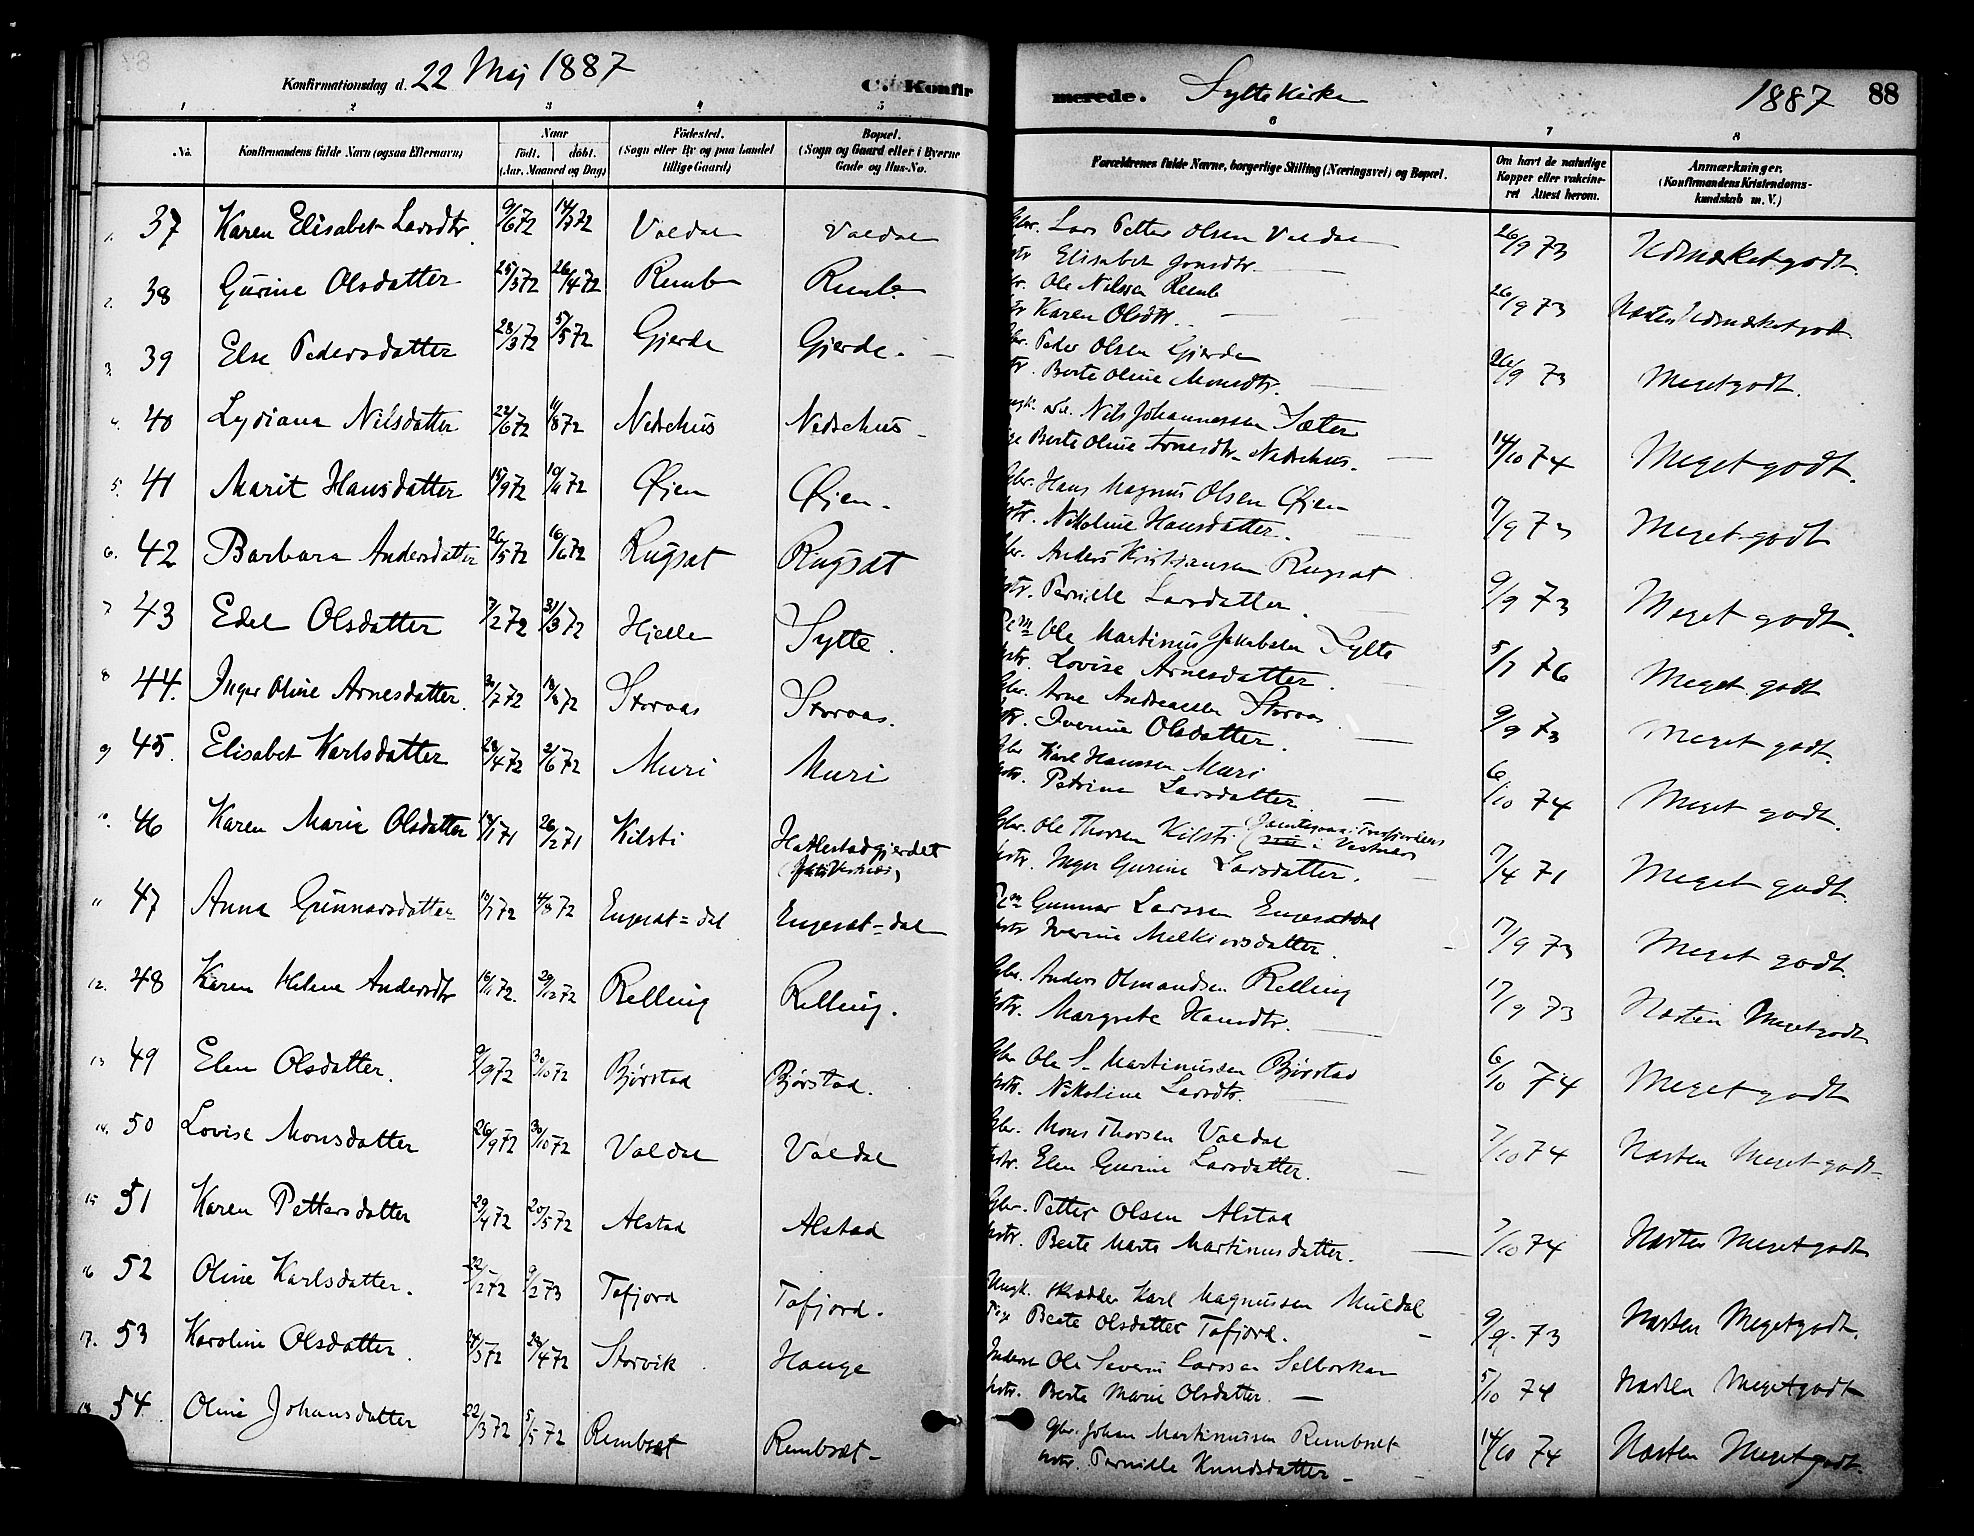 Konfirmationsdag d. 22 Maj 1887
C. Konfirmerede. Sylte Kirke 1887 88
1 2 3 4 5 6 7 8
No. Konfirmandens fulde Navn (ogsaa Efternavn) Naar født. døbt. (Aar, Maaned og Dag) Fødested. (Sogn eller By og paa Landet tillige Gaard) Bopæl. (Sogn og Gaard eller i Byerne Gade og Hus-No. Forældrenes fulde Navne, borgerlige Stilling (Næringsvei) og Bopæl. Om havt de naturlige Kopper eller vaccineret Attest herom. Anmærkninger. (Konfirmandens Kristendomskundskab m. V.)
1. 37 Karen Elisabet Larsdtr. 9/6 72 14/7 72 Valdal Valdal Gbr. Lars Petter Olsen Valdal 26/9 73 Udmærket godt.
Elisabet Jonsdtr.
2. 38 Gurine Olsdatter 25/3 72 26/4 72 Remb Remb Ole Nilssen Remb 26/9 73 Næsten Udmærket godt
Karen Olsdtr.
3. 39 Else Pedersdatter 28/3 72 5/5 72 Gjerde Gjerde. Peder Olsen Gjerde 26/9 73 Meget godt.
Berte Oline Monsdtr.
4. 40 Lydiana Nilsdatter 22/6 72 11/8 72 Nedrehus Nedrehus Nils Johannessen Sæter 14/10 74 Meget godt.
Berte Oline Arnesdtr. Nedrehus.
5. 41 Marit Hansdatter 15/9 72 10/11 72 Øjen Øjen. Gbr. Hans Magnus Olsen Øjen 7/9 73 Meget godt
Nikoline Hansdatter.
6. 42 Barbara Andersdatter 26/5 72 16/6 72 Rugsæt Rugsæt Gbr. Anders Kristiansen Rugsæt 9/9 73 Meget godt.
Pernille Larsdatter.
7 43 Edel Olsdatter 7/2 72 31/3 72 Hjelle Sylte. Ole Martinus Jakobsen Sylte 5/7 76 Meget godt
Lovise Arnesdatter.
8 44. Inger Oline Arnesdatter. 30/7 72 18/8 72 Storaas Storaas. Gbr. Arne Andreassen Storaas 9/9 73 Meget godt.
Iverine Olsdatter.
9 45. Elisabet Karlsdatter 28/4 72 2/6 72 Muri Muri Gbr Karl Hanssen Muri 6/10 74 Meget godt.
Petrine Larsdatter.
10. 46 Karen Marie Olsdatter 14/1 71 26/2 71 Kilsti Hatlestadgjerdet Gbr. Ole Thorsen Kilsti 17/4 71 Meget godt.
Inger Gurine Larsdatter.
11 47 Anna Gunnarsdatter 10/7 72 4/8 72 Engeset=dal Engeset=dal Gunnar Larssen Engesetdal 17/9 73 Meget godt.
Iverine Melkiorsdatter.
12. 48 Karen Helene Andersdtr 16/11 72. 29/12 72 Relling Relling. Gbr. Anders Osmundsen Relling 17/9 73 Næsten Meget godt
Margrete Hansdtr.
13 49 Elen Olsdatter. 9/9 72 30/10 72 Bjørstad Bjørstad. Gbr Ole S. Martinussen Bjørstad 6/10 74 Meget godt
Nikoline Larsdtr.
14. 50 Lovise Monsdatter 26/9 72 30/10 72 Valdal Valdal Gbr. Mons Thorsen Valdal 7/10 74 Næsten Meget godt
Elen Gurine Larsdatter.
15 51 Karen Pettersdatter 29/4 72 20/5 72 Alstad Alstad Gbr. Petter Olsen Alstad 7/10 74 Næsten Meget godt
Berte Marte Martinusdatter.
16 52 Oline Karlsdatter. 22/12 72 9/2 73 Tafjord Tafjord. Ungk. skrædder Karl Magnussen Muldal 9/9 73 Næsten Meget godt.
Pige Beate Olsdatter Tafjord.
17. 53 Karoline Olsdatter. 24/3 72 28/4 72 Storvik Hauge Inderst Ole Severin Larssen Selboskar 5/10 74 Næsten Meget godt
Berte Marie Olsdatter.
54 Oline Johansdatter 22/3 72 5/5 72 Rembsæt Rembsæt Gbr. Johan Martinussen Rembsæt 14/10 74 Næsten Meget godt.
Pernille Knudsdatter